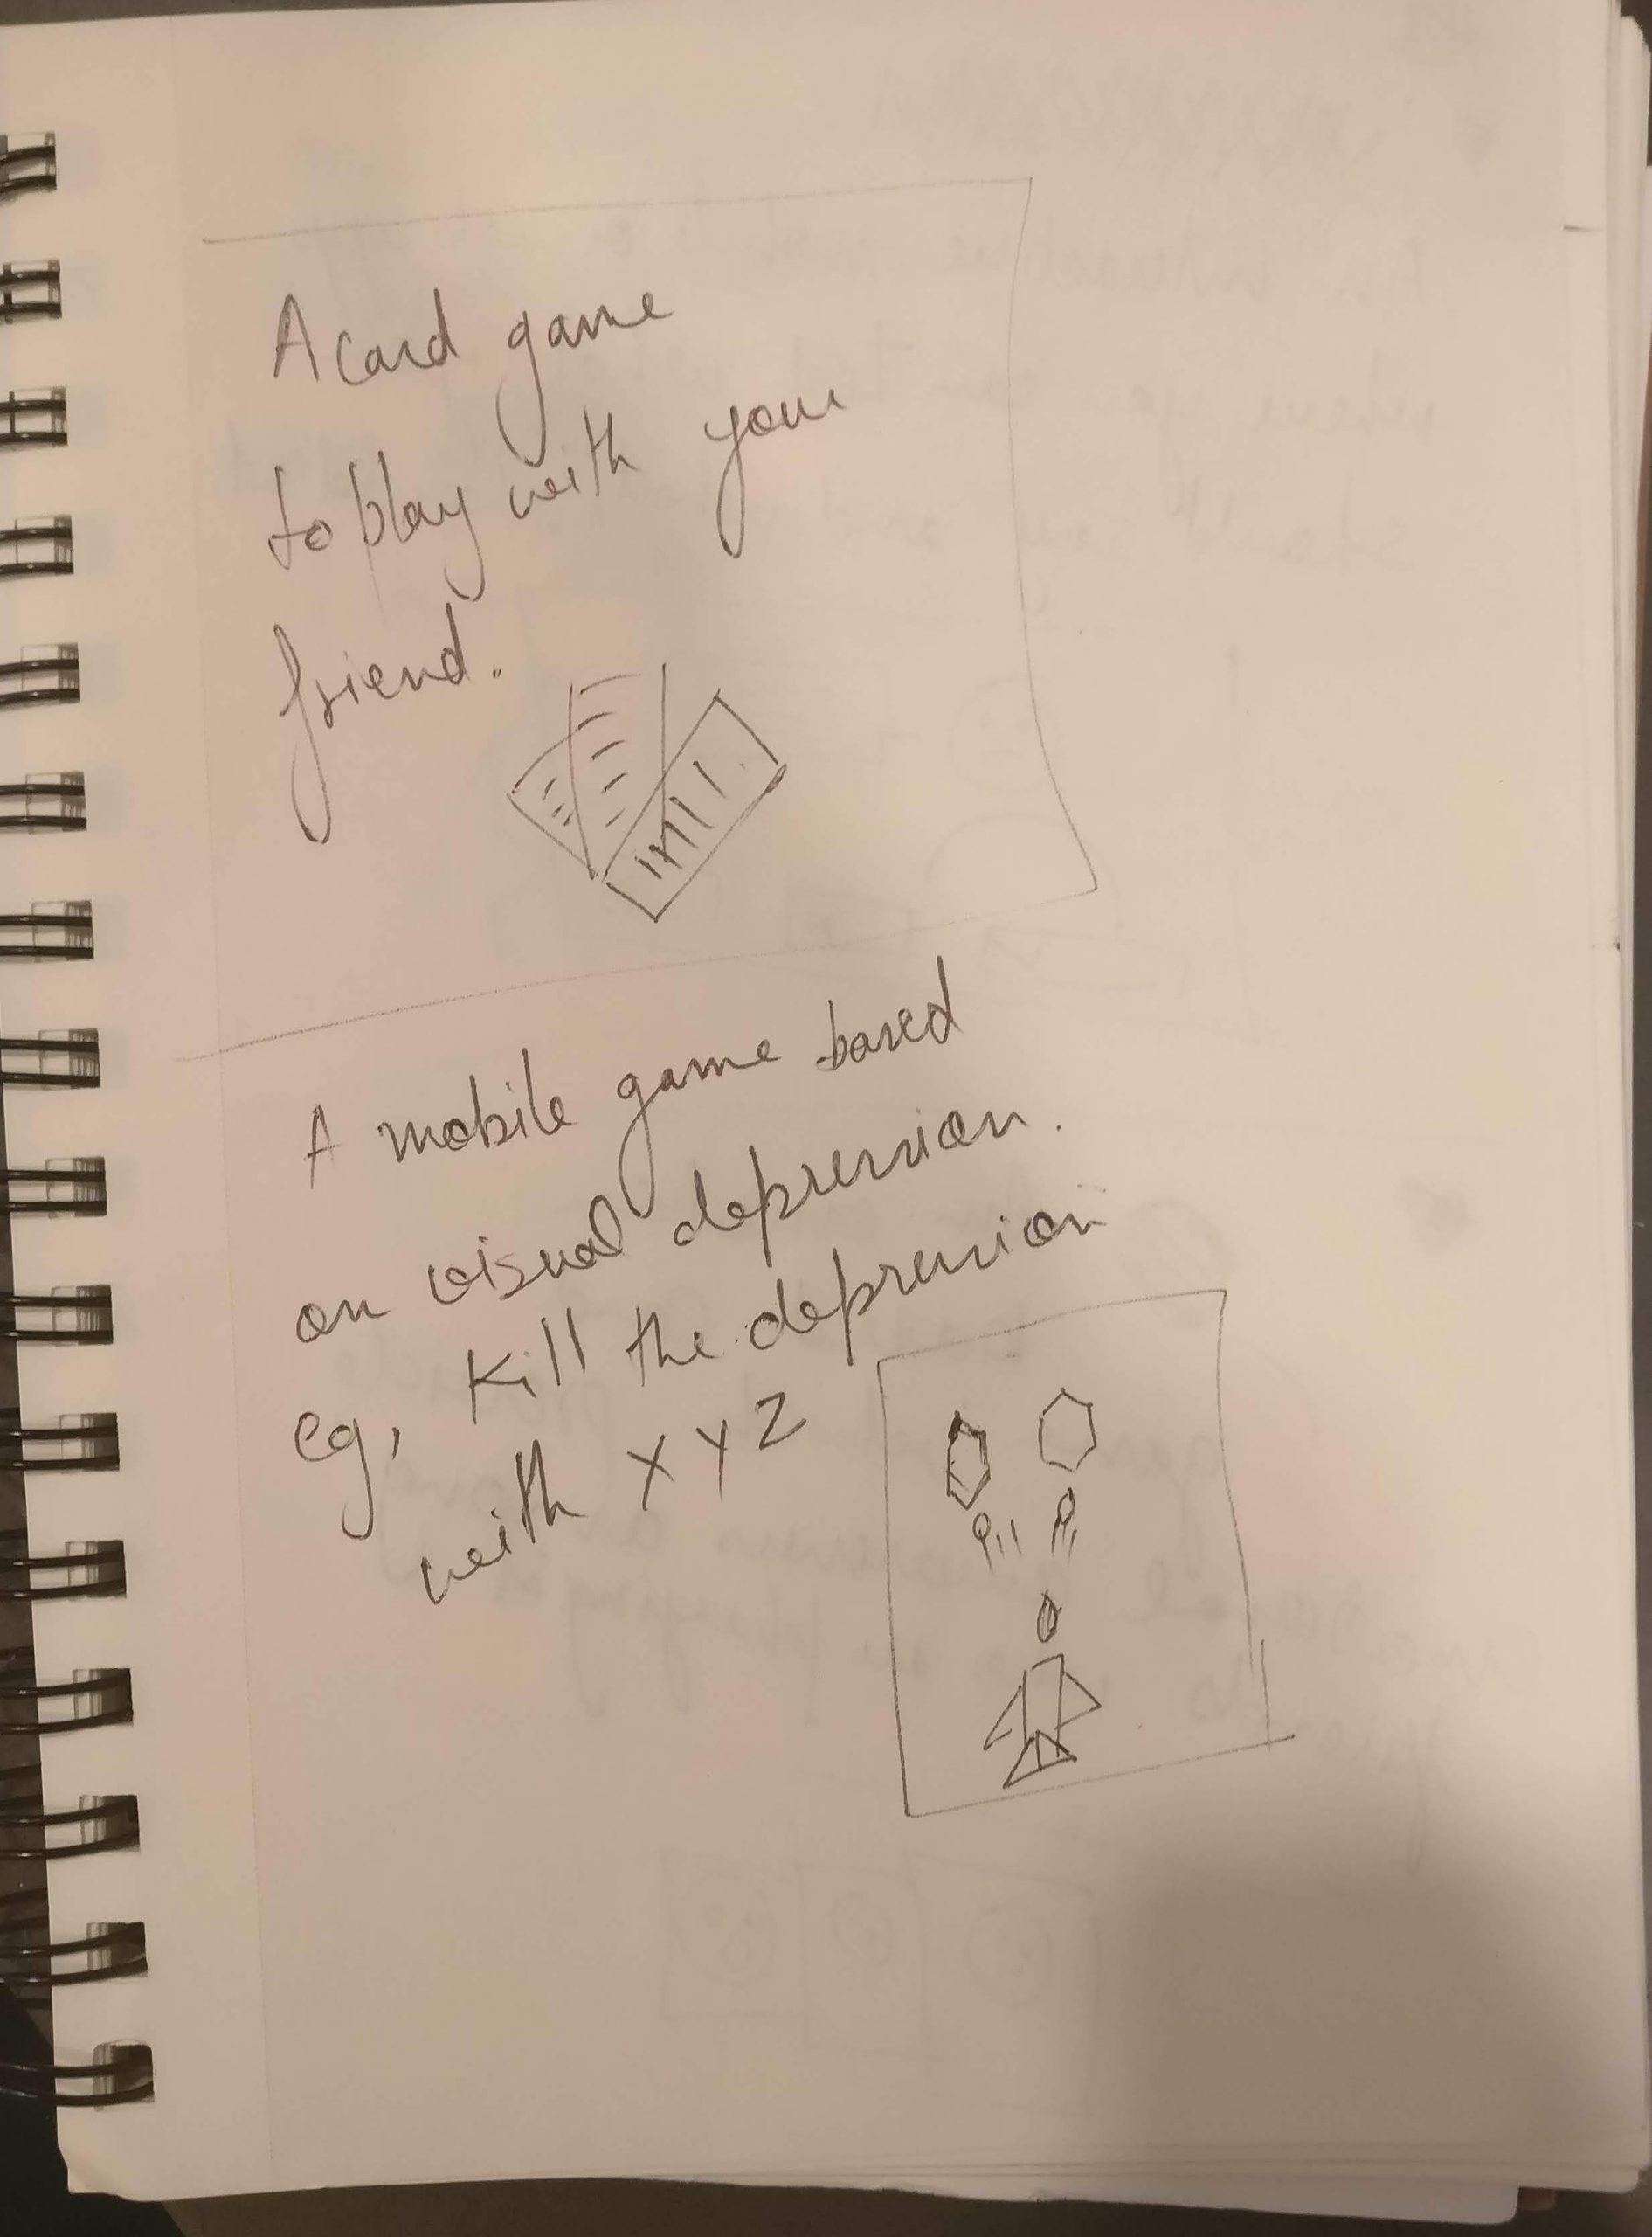 A card game
to play with your
friend.
A mobile game based
on visual depression.
eg, Kill the depression
with XYZ